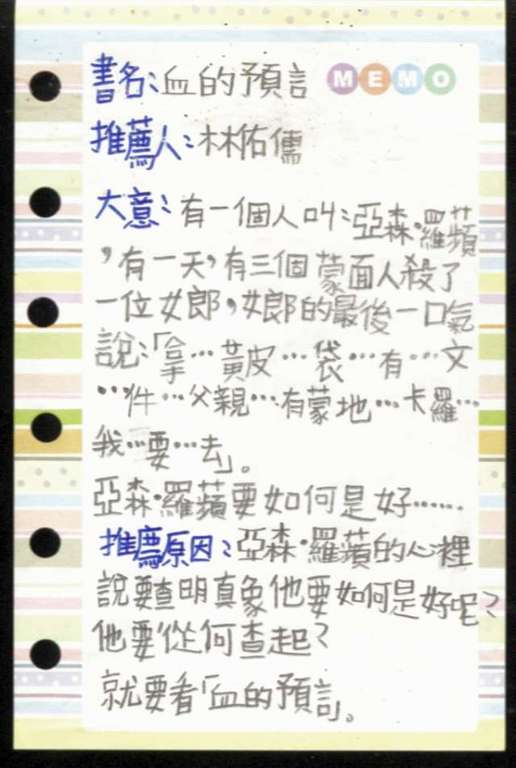 書名:血的預言 MEMO
推薦人:林佑儒
大意:有一個人叫:亞森·羅蘋
,有一天,有三個蒙面人殺了
一位女郎,女郎的最後一口氣
說:「拿…黃皮…袋…有…文
…件…父親…有蒙地…卡羅…
我…要…去」。
亞森·羅蘋要如何是好……
推薦原因:亞森·羅蘋的心裡
說要查明真象他要如何是好呢?
他要從何查起?
就要看「血的預言」。